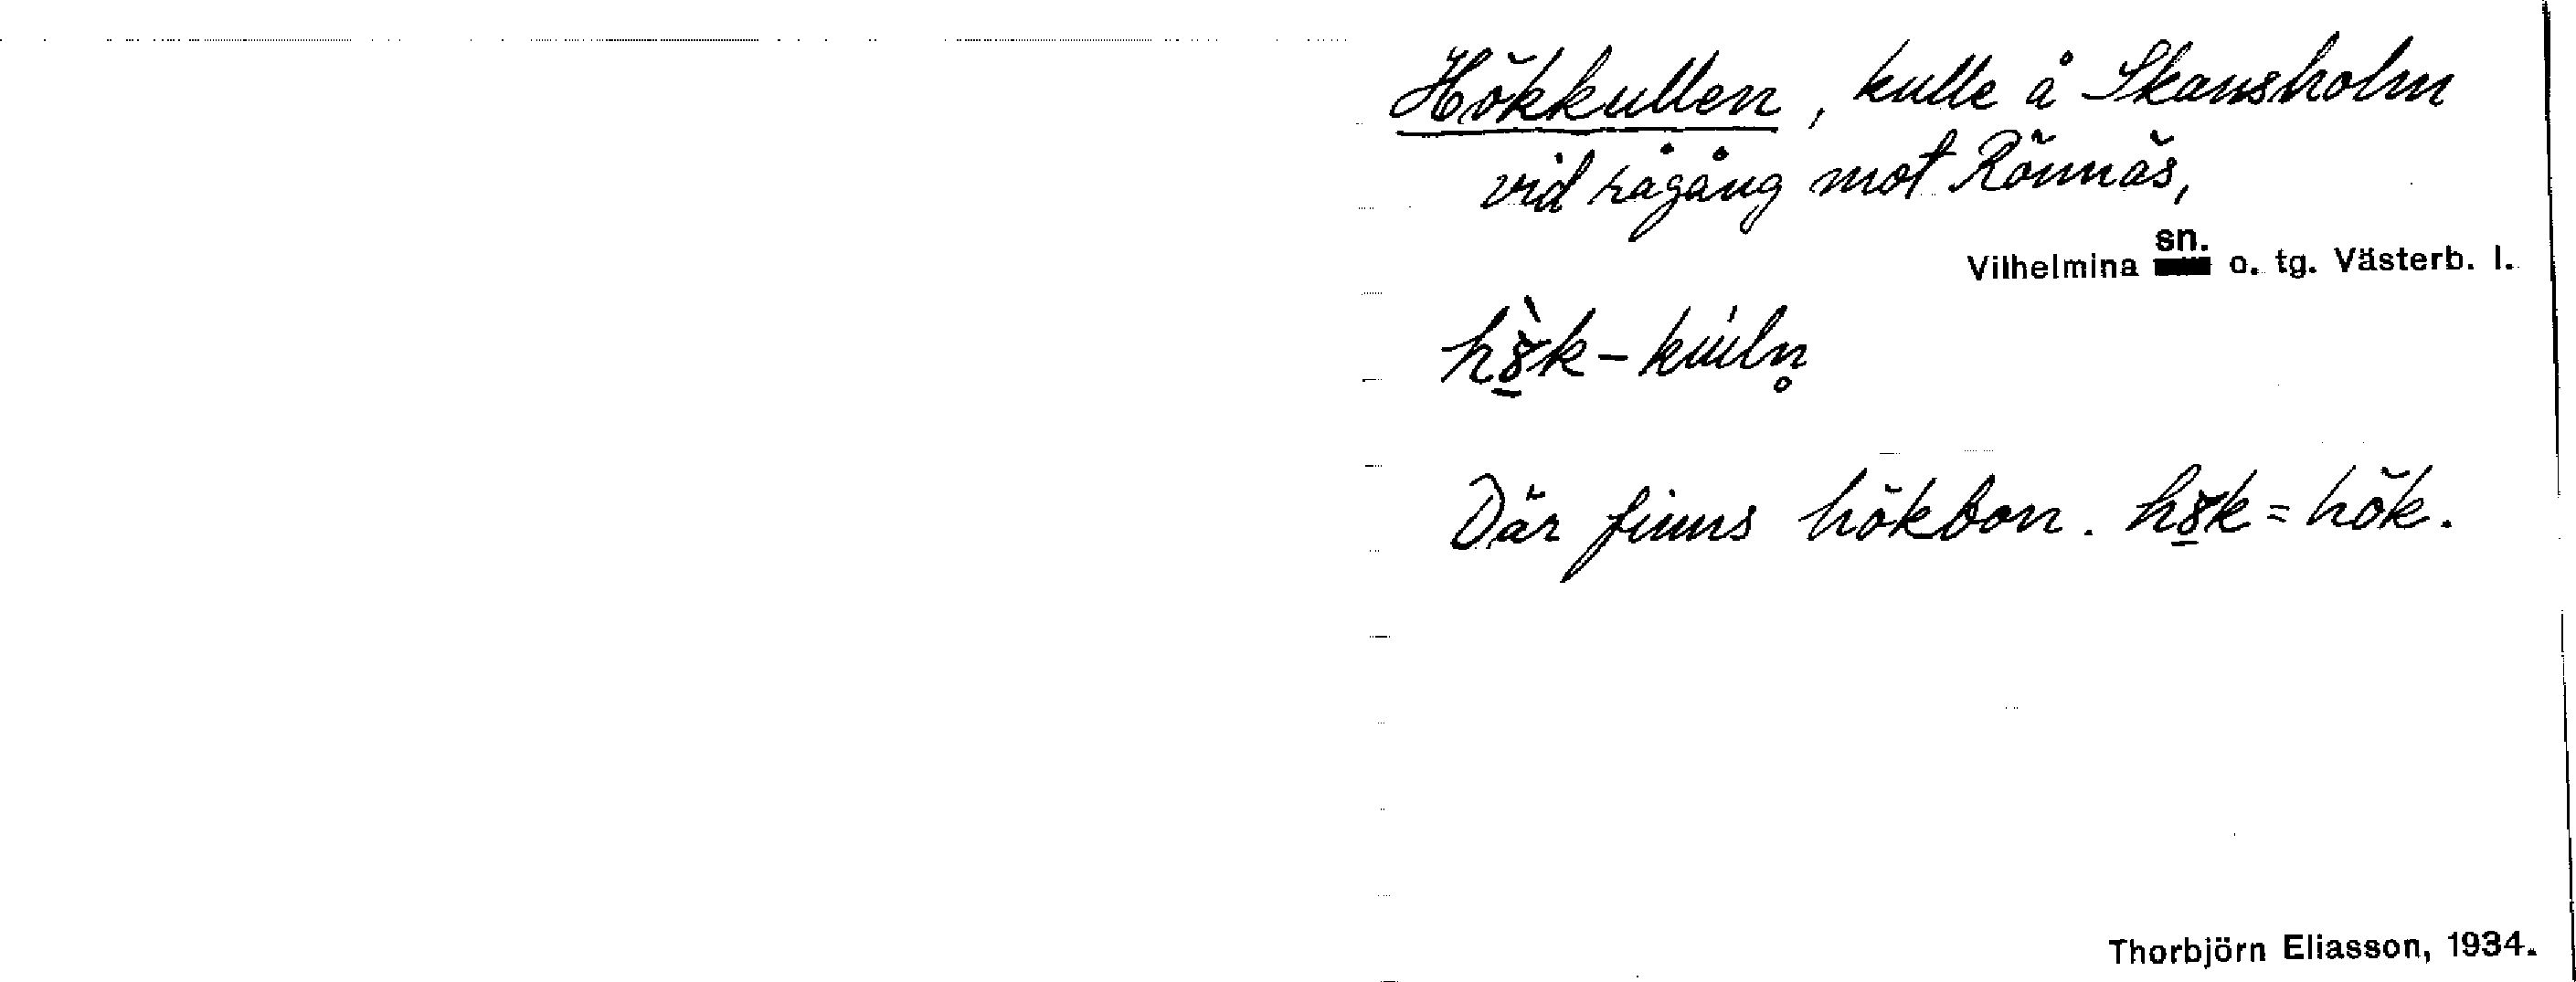 Hökkullen, kulle å Skansholm
vid rågång mot Rönnäs,
Vilhelmina sn. o. tg. Västerb. l.
Där finns hökbon. = hök.
Thorbjörn Eliasson, 1934.